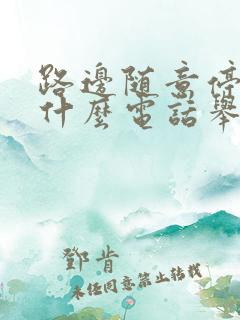 路邊随意停
什麼電話舉
鄧肯
未经同意禁止转载